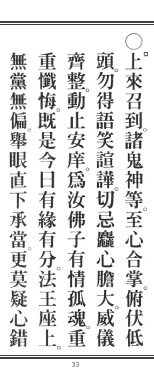 ○上來召到。諸鬼神等。至心合掌。俯伏低
頭。勿得語笑諠譁。切忌麤心膽大。威儀
齊整。動止安庠。為汝佛子有情孤魂。重
重懺悔。既是今日有緣有分。法王座上。
無黨無偏。舉眼直下承當。更莫疑心錯
33